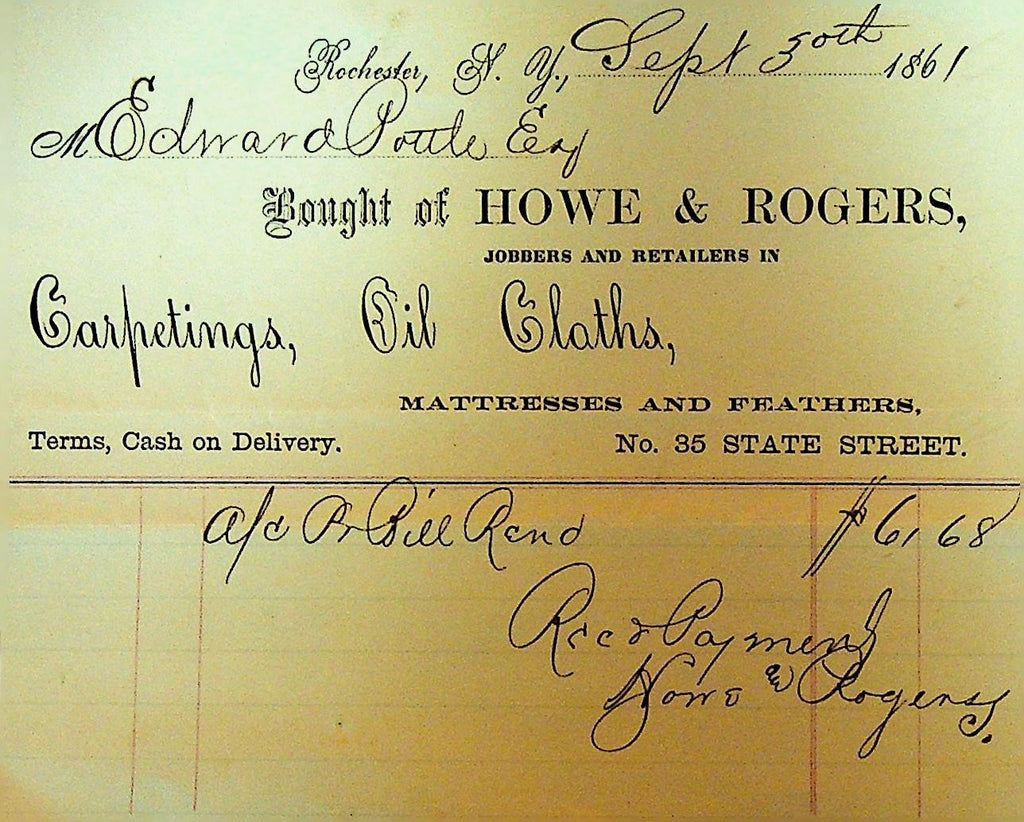 Rochester, N. Y., Sept 30th 1861
M Edward Pottle Esq
Bought of HOWE & ROGERS,
JOBBERS AND RETAILERS IN
Carpetings, Oil Cloths,
MATTRESSES AND FEATHERS,
Terms, Cash on Delivery. No. 35 STATE STREET.
a/c Pr Bill Rend $61 68
Recd Payment
Howe & Rogers.